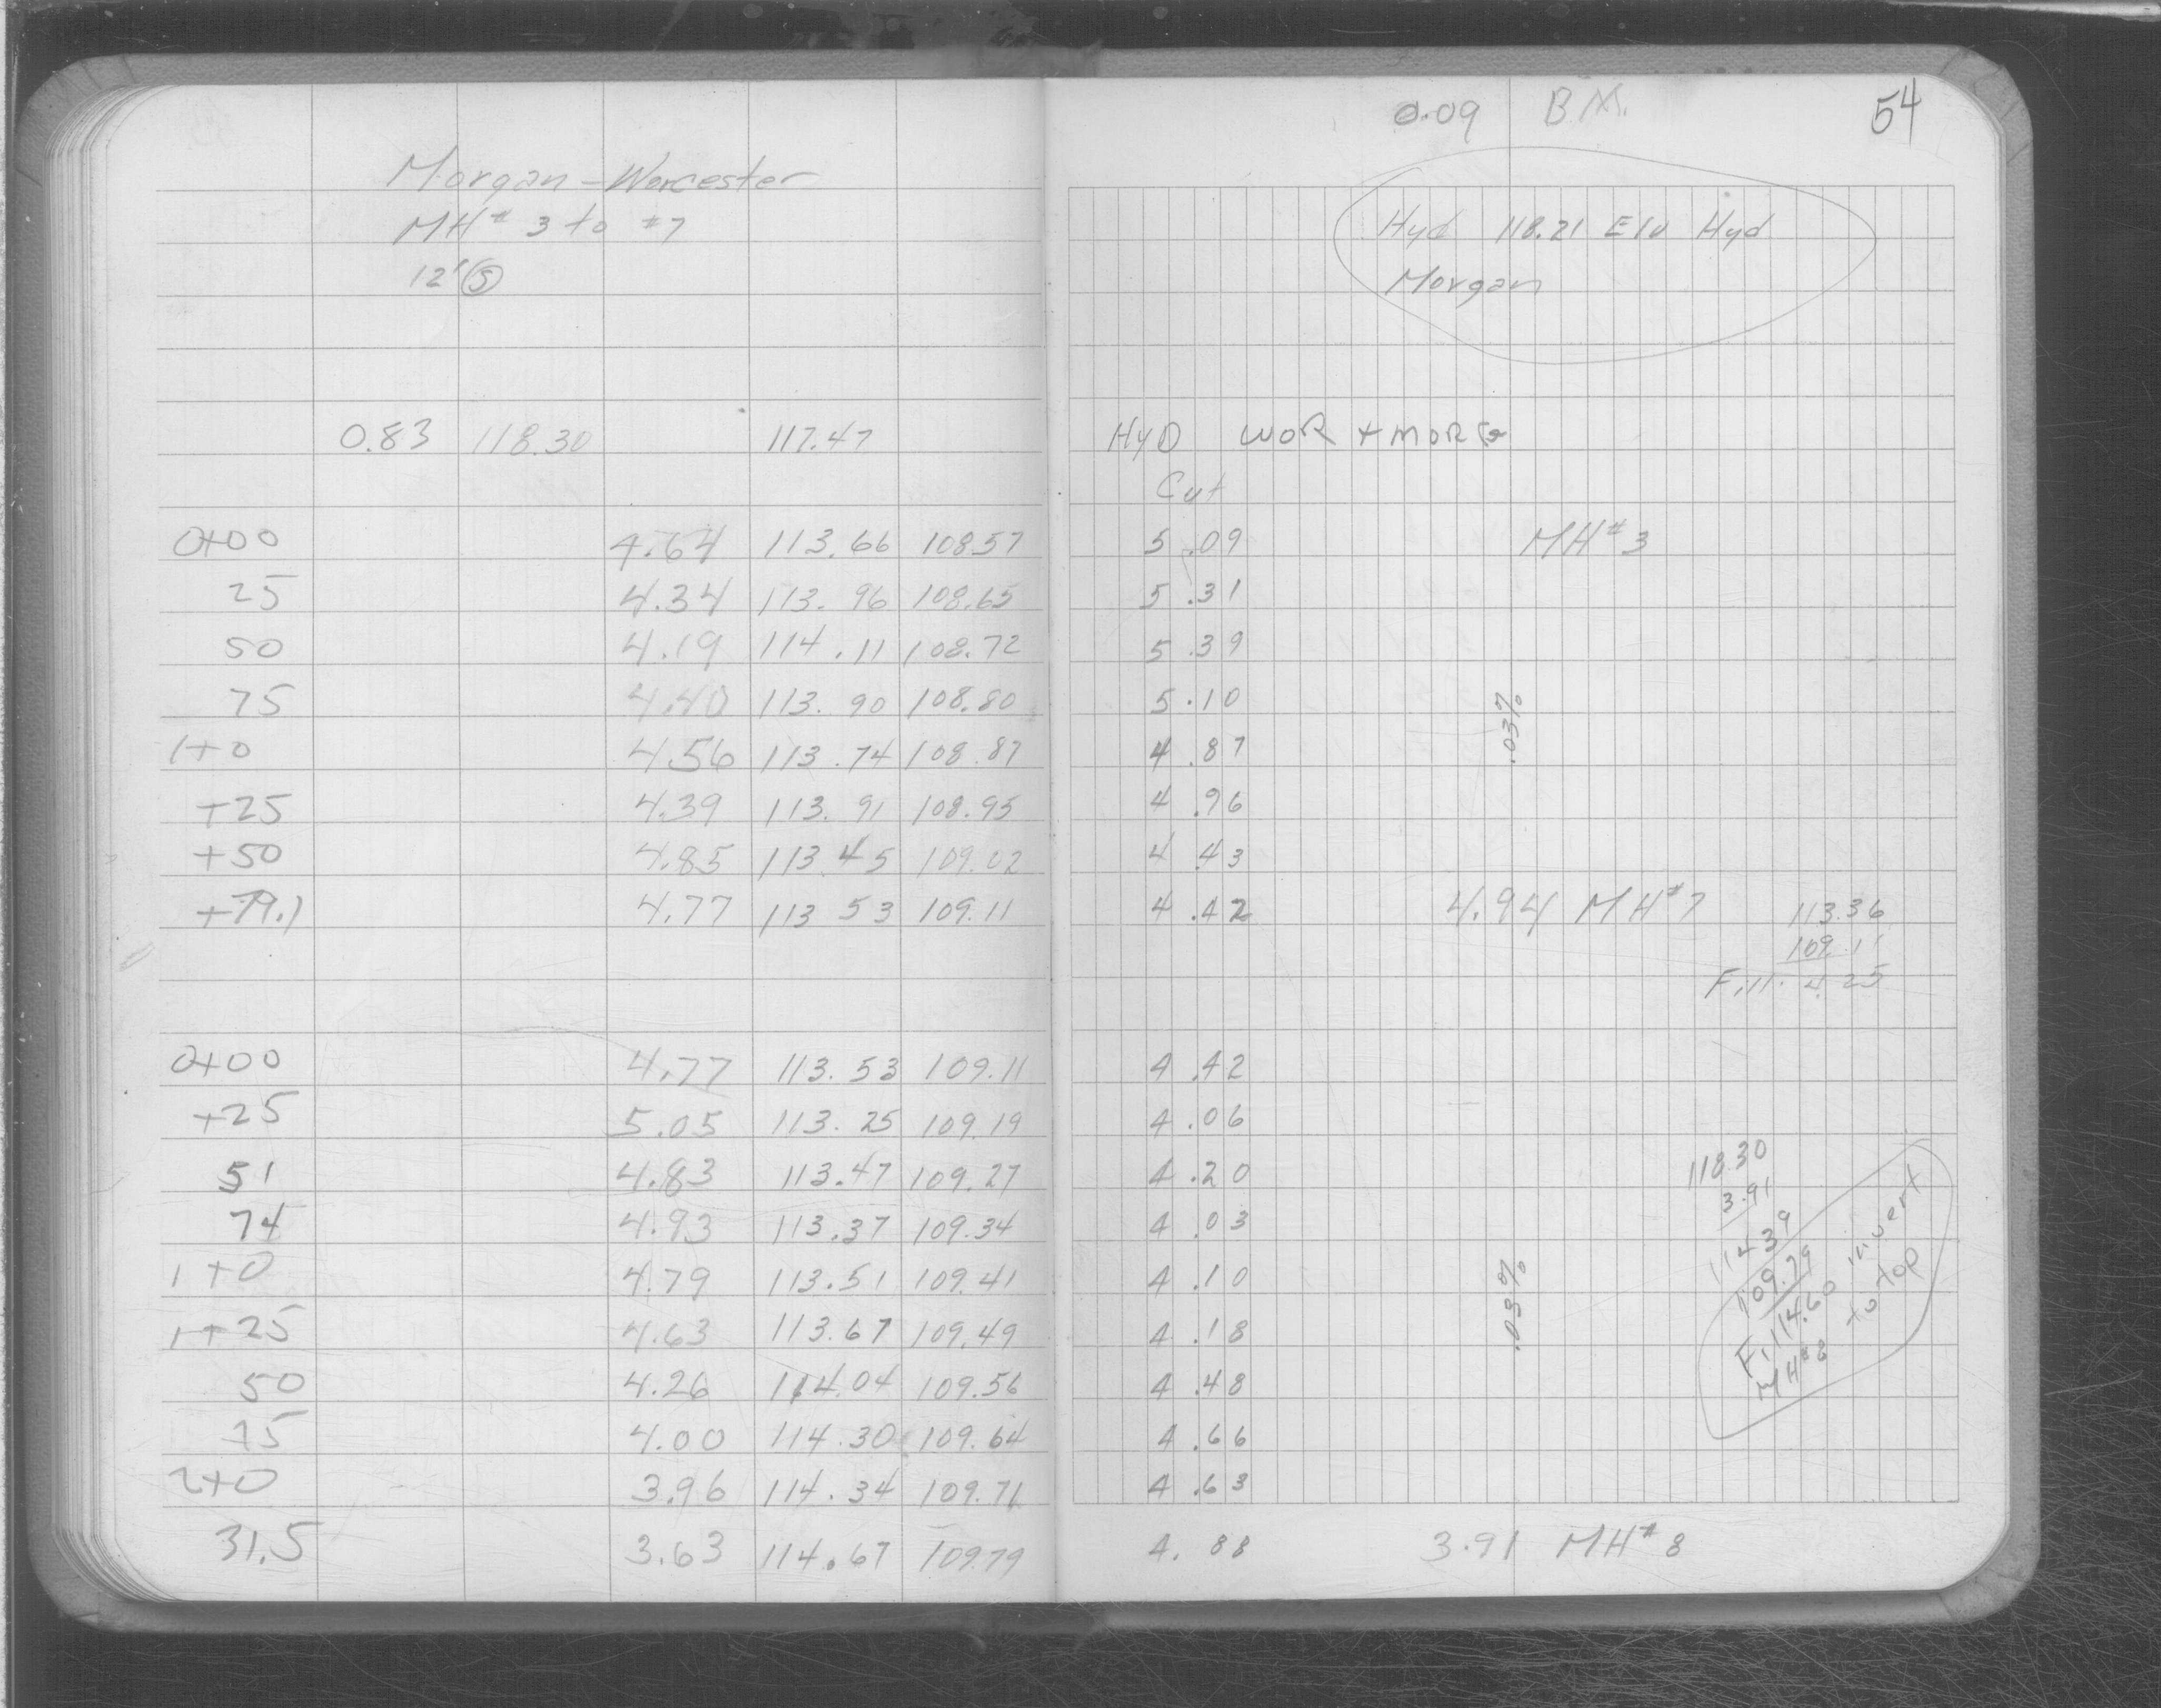 0.09 B.M. 54
Morgan - Worcester
MH# 3 to #7
12' S
Hyd 118.21 Elv Hyd
Morgan
0.83 118.30 117.47 HyD WOR + MORG
Cut
0+00 4.64 113.66 108.57 5.09 MH# 3
25 4.34 113.96 108.65 5.31
50 4.19 114.11 108.72 5.39
75 4.40 113.90 108.80 5.10
.03%
1+0 4.56 113.74 108.87 4.87
+25 4.39 113.91 108.95 4.96
+50 4.85 113.45 109.02 4.43
+79.1 4.77 113 53 109.11 4.42 4.94 MH# 7 113.36
109.11
Fill. 4.25
0+00 4.77 113.53 109.11 4.42
+25 5.05 113.25 109.19 4.06
51 4.83 113.47 109.27 4.20
74 4.93 113.37 109.34 4.03
1+0 4.79 113.51 109.41 4.10
.03%
1+25 4.63 113.67 109.49 4.18
50 4.26 114.04 109.56 4.48
75 4.00 114.30 109.64 4.66
2+0 3.96 114.34 109.71 4.63
31.5 3.63 114.67 109.79 4.88 3.91 MH# 8
118.30
3.91
114.39
109.79
Fill 4.60 invert
MH# 8 to top